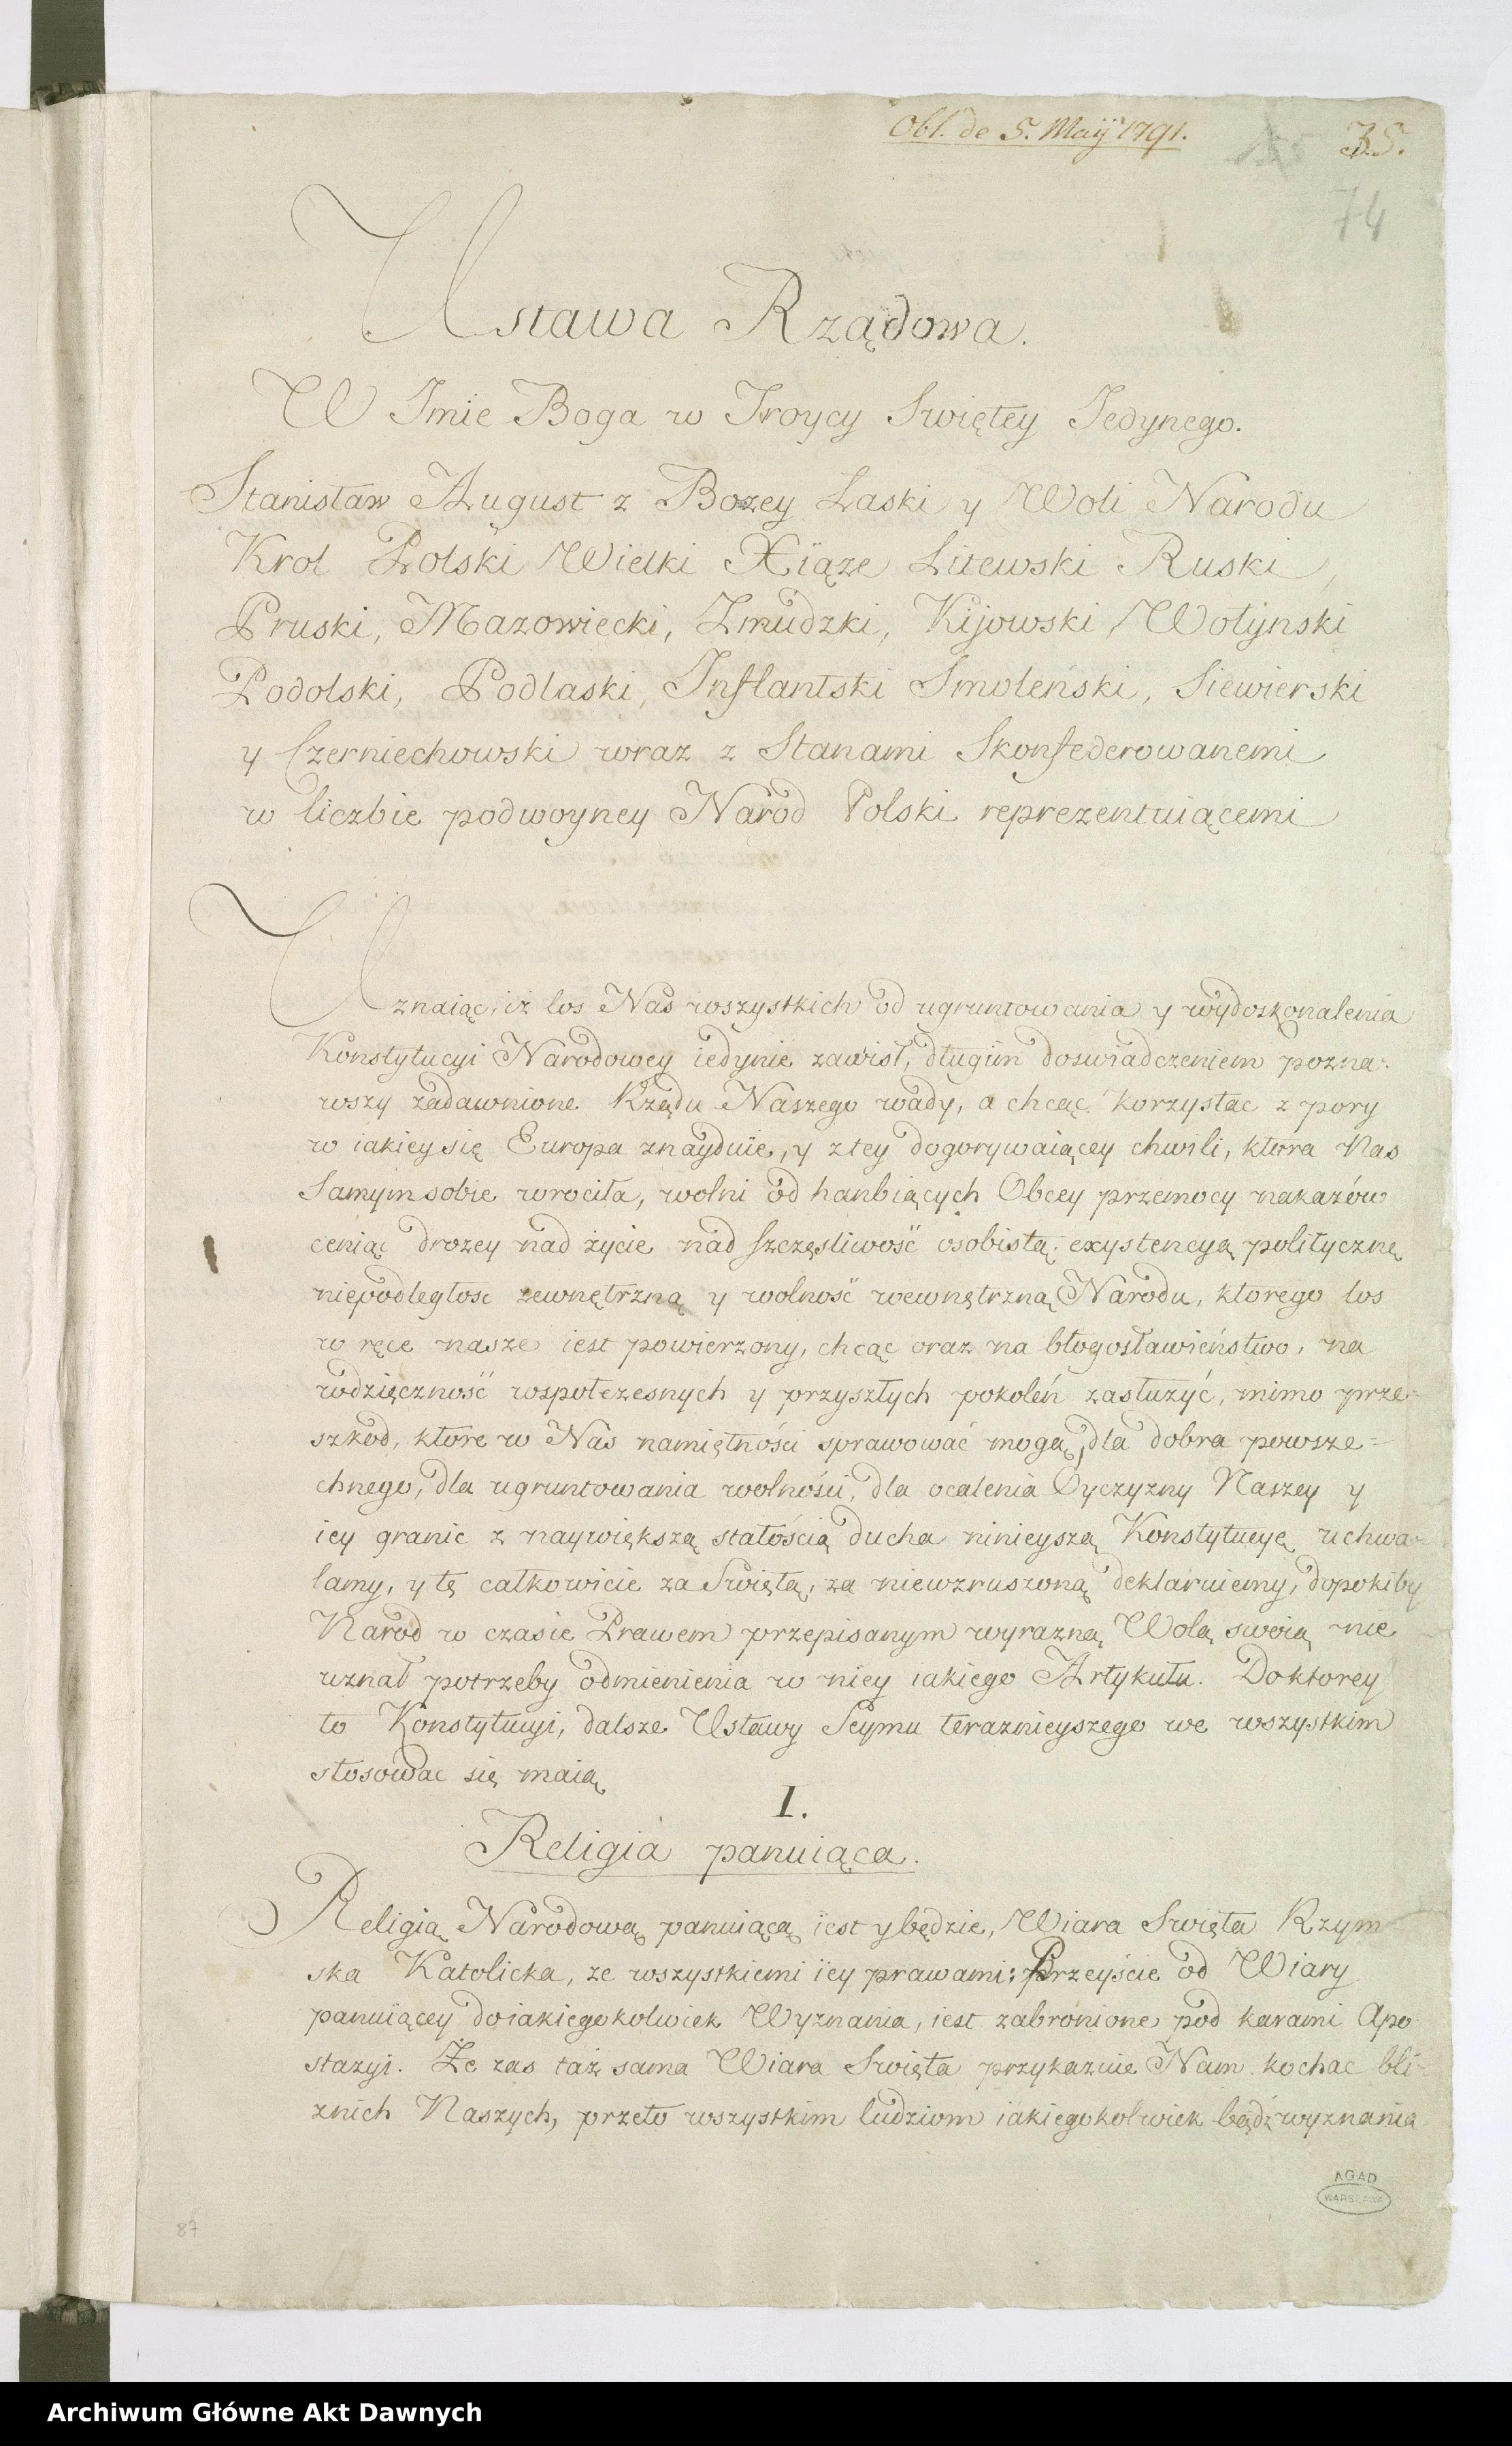 Obl. de 5. Maij 1791.
35.
74
Ustawa Rządowa.
W Imie Boga w Troycy Swiętey Jedynego.
Stanisław August z Bozey Łaski y Woli Narodu
Krol Polski Wielki Xiąze Litewski Ruski,
Pruski, Mazowiecki, Zmudzki, Kijowski, Wołynski
Podolski, Podlaski, Inflantski Smoleński, Siewierski
y Czerniechowski wraz z Stanami Skonfederowanemi
w liczbie podwoyney Naród Polski reprezentuiącemi
Uznaiąc, iż los Nas wszystkich od ugruntowania y wydoskonalenia
Konstytucyi Narodowey iedynie zawisł, długim doswiadczeniem pozna-
wszy zadawnione Rządu Naszego wady, a chcąc korzystac z pory
w iakiey się Europa znayduie, y z tey dogorywaiącey chwili, ktora Nas
samym sobie wrociła, wolni od hanbiących Obcey przemocy nakazów
ceniąc drozey nad życie nad szczęsliwość osobistą, exystencyą polityczną
niepodległosc zewnętrzną y wolność wewnętrzną Narodu, ktorego los
w ręce nasze iest powierzony, chcąc oraz na błogosławieństwo, na
wdzięczność wspołczesnych y przyszłych pokoleń zasłużyć, mimo prze-
szkod, ktore w Nas namiętności sprawować mogą, dla dobra powsze=
chnego, dla ugruntowania wolności, dla ocalenia Oyczyzny Naszey y
iey granic z naywiększą stałością ducha ninieyszą Konstytucyę uchwa-
lamy, y tę całkowicie za Swiętą, za niewzruszoną deklaruiemy, dopokiby
Narod w czasie Prawem przepisanym wyrazną Wolą swoią nie
uznał potrzeby odmienienia w niey iakiego Artykułu. Do ktorey
to Konstytucyi, dalsze Ustawy Seymu teraznieyszego we wszystkim
stosowac się maią
I.
Religia panuiąca.
Religią Narodową panuiącą iest y będzie, Wiara Swięta Rzym-
ska Katolicka, ze wszystkiemi iey prawami; Przeyście od Wiary
panuiącey do iakiegokolwiek Wyznania, iest zabronione pod karami Apo-
stazyi. Że zas taż sama Wiara Swięta przykazuie Nam kochac bli-
znich Naszych, przeto wszystkim ludziom iakiegokolwiek bądź wyznania
AGAD
WARSZAWA
87
Archiwum Główne Akt Dawnych